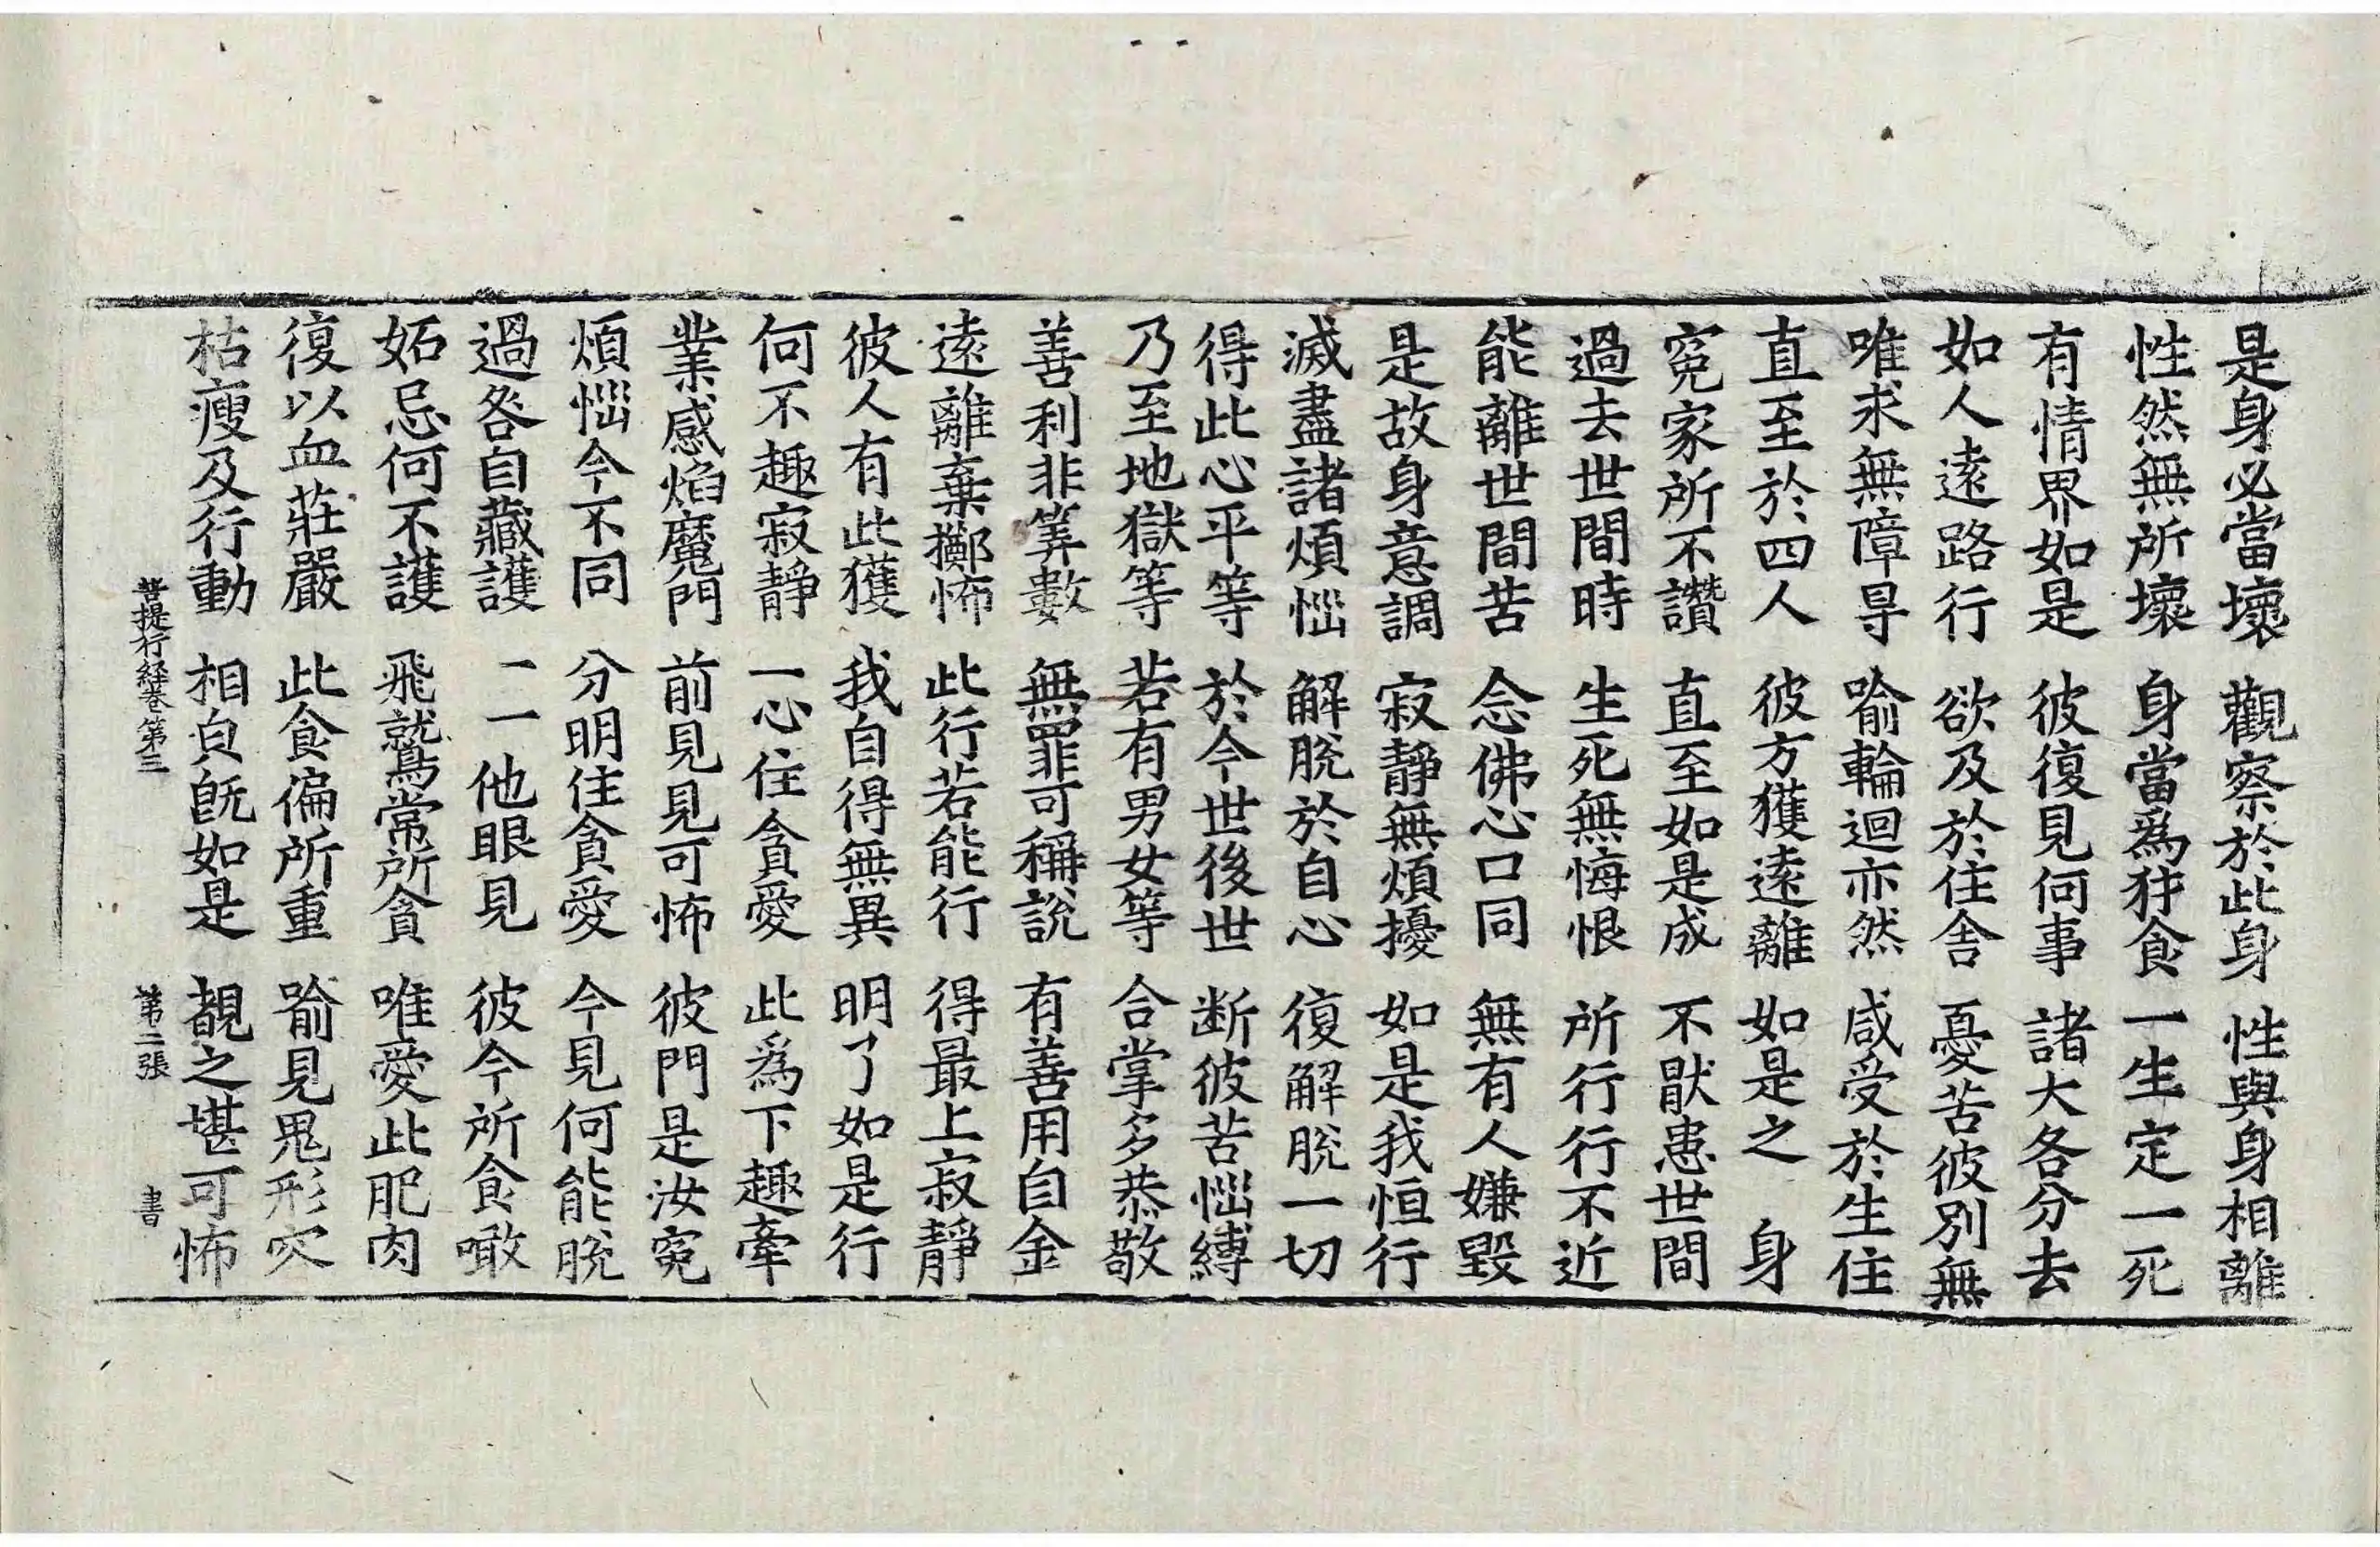 是身必當壞 觀察於此身 性與身相離
性然無所壞 身當爲犲食 一生定一死
有情界如是 彼復見何事 諸大各分去
如人遠路行 欲及於住舍 憂苦彼別無
唯求無障㝵 喻輪迴亦然 咸受於生住
直至於四人 彼方獲遠離 如是之 身
寃家所不讚 直至如是成 不猒患世間
過去世間時 生死無悔恨 所行行不近
能離世間苦 念佛心口同 無有人嫌毀
是故身意調 寂靜無煩擾 如是我恒行
滅盡諸煩惱 解脫於自心 復解脫一切
得此心平等 於今世後世 断彼苦惱縛
乃至地獄等 若有男女等 合掌多恭敬
善利非筭數 無罪可稱說 有善用自金
遠離棄擲怖 此行若能行 得最上寂靜
彼人有此獲 我自得無異 明了如是行
何不趣寂靜 一心住貪愛 此爲下趣牽
業感焰魔門 前見見可怖 彼門是汝寃
煩惱今不同 分明住貪愛 今見何能脫
過咎自藏護 一一他眼見 彼今所食噉
妬忌何不護 飛鷲常所貪 唯愛此肥肉
復以血莊嚴 此食偏所重 喻見鬼形穴
枯瘦及行動 相皃旣如是 覩之堪可怖
菩提行経卷第三 第二張 書